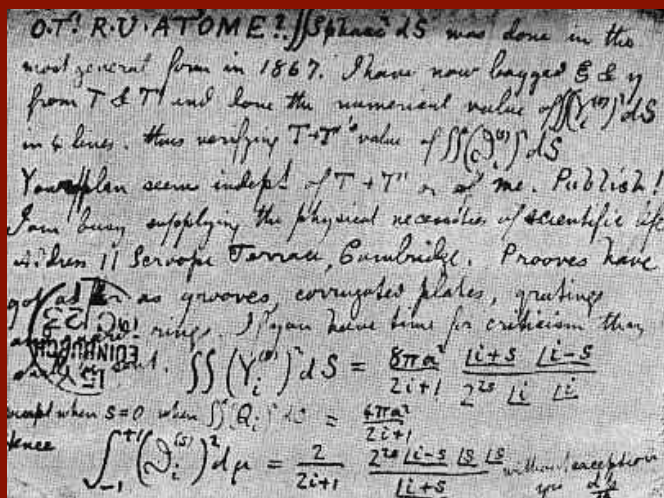 O.T'! R.U. AT'OME?. ∬Spharc² dS was done in the
most general form in 1867. I have now bagged ξ & η
from T & T' and done the numerical value of ∬(Y_i^(s))² dS
in 4 lines. thus verifying T+T'^s value of ∬(ϑ_i^(s))² dS
Your plan seems indept of T + T' or of me. Publish!
I am busy supplying the physical necessities of scientific life
11 Scroope Terrace, Cambridge. Prooves have
got as far as grooves, corrugated plates, gratings
rings. If you have time for criticism they
sent. ∬(Y_i^(s))² dS = 8πa²/(2i+1) |i+s |i-s / 2^2s |i |i
except when s=0 when ∬(Q_i)² dS = 4πa²/(2i+1)
Hence ∫_-1^+1 (ϑ_i^(s))² dμ = 2/(2i+1) 2^2s |i-s |s |s / |i+s without exception
EDINBURGH